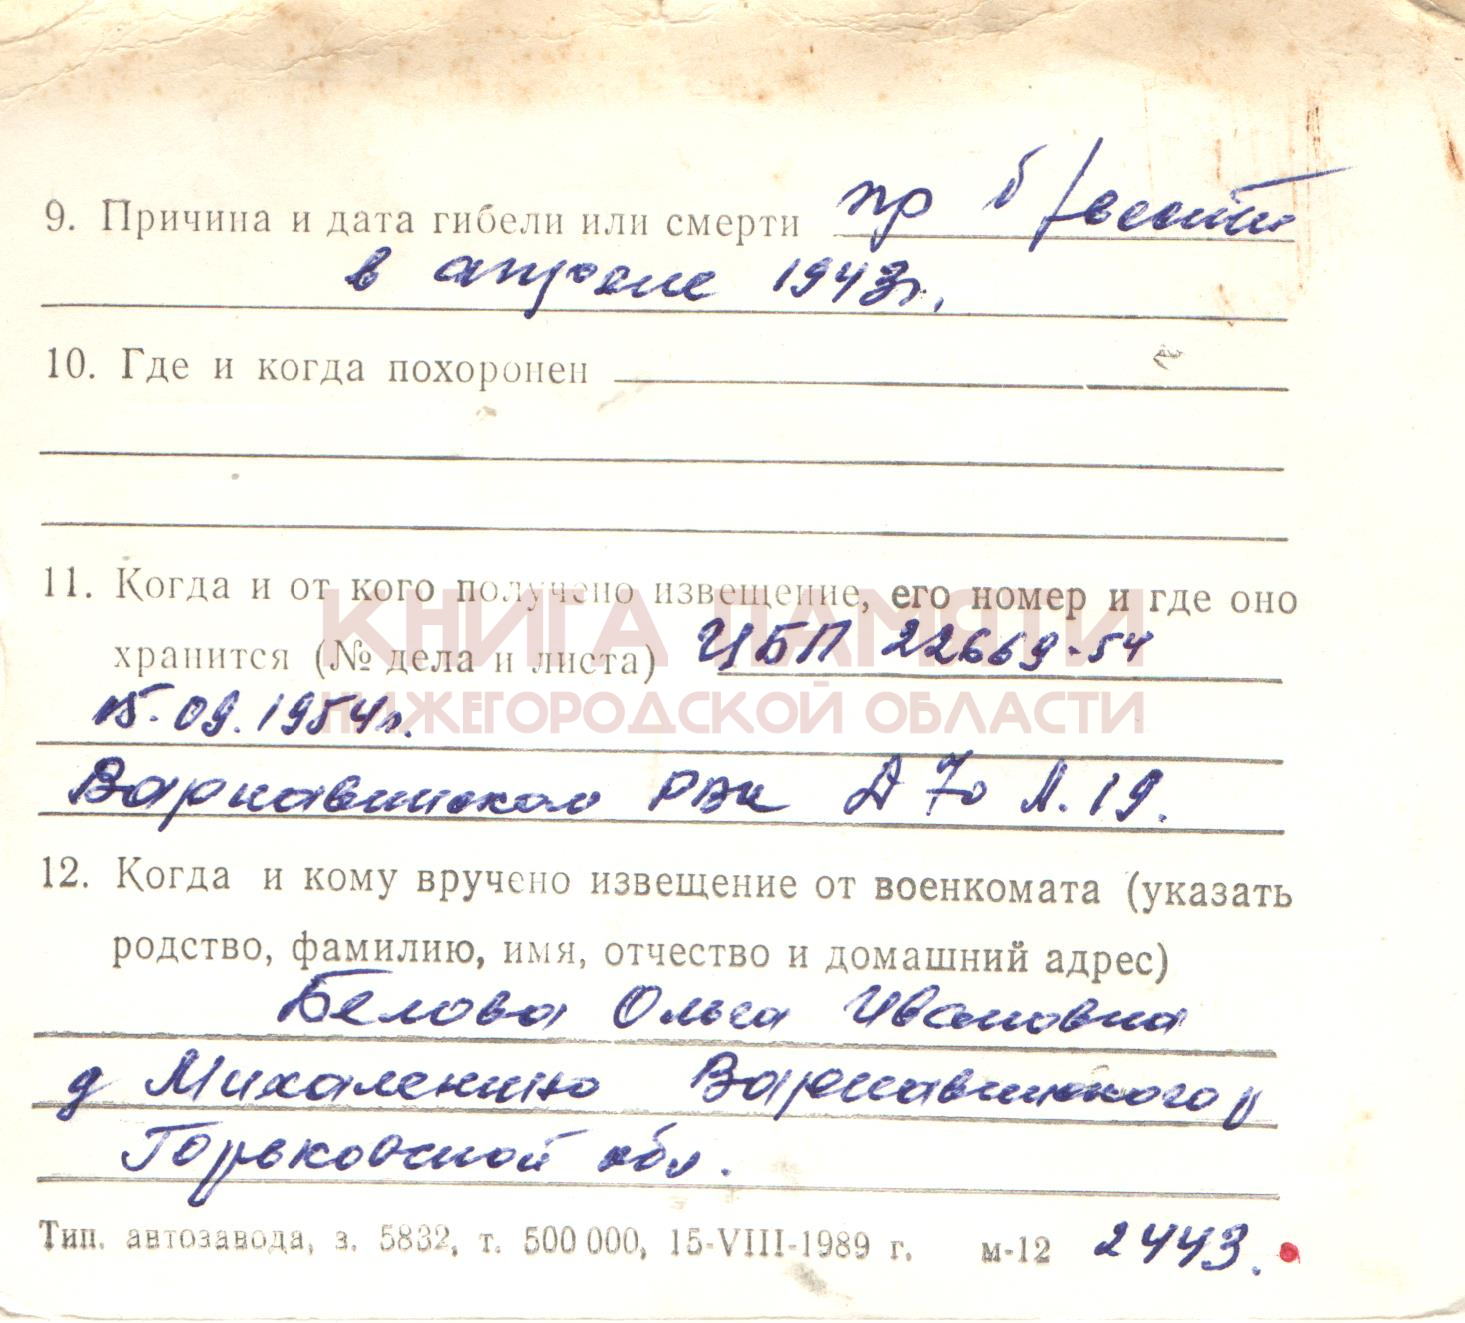 9. Причина и дата гибели или смерти пр б/вести
в апреле 1943г.
10. Где и когда похоронен
11. Когда и от кого получено извещение, его номер и где оно
хранится (№ дела и листа) ЦБП 22669-54
КНИГА ПАМЯТИ
НИЖЕГОРОДСКОЙ ОБЛАСТИ
15.09.1954г.
Варнавинском РВК Д 70 Л. 19.
12. Когда и кому вручено извещение от военкомата (указать
родство, фамилию, имя, отчество и домашний адрес)
Белова Ольга Ивановна
д Михаленино Варнавинского р
Горьковской обл.
Тип. автозавода, з. 5832, т. 500 000, 15-VIII-1989 г. м-12 2443.